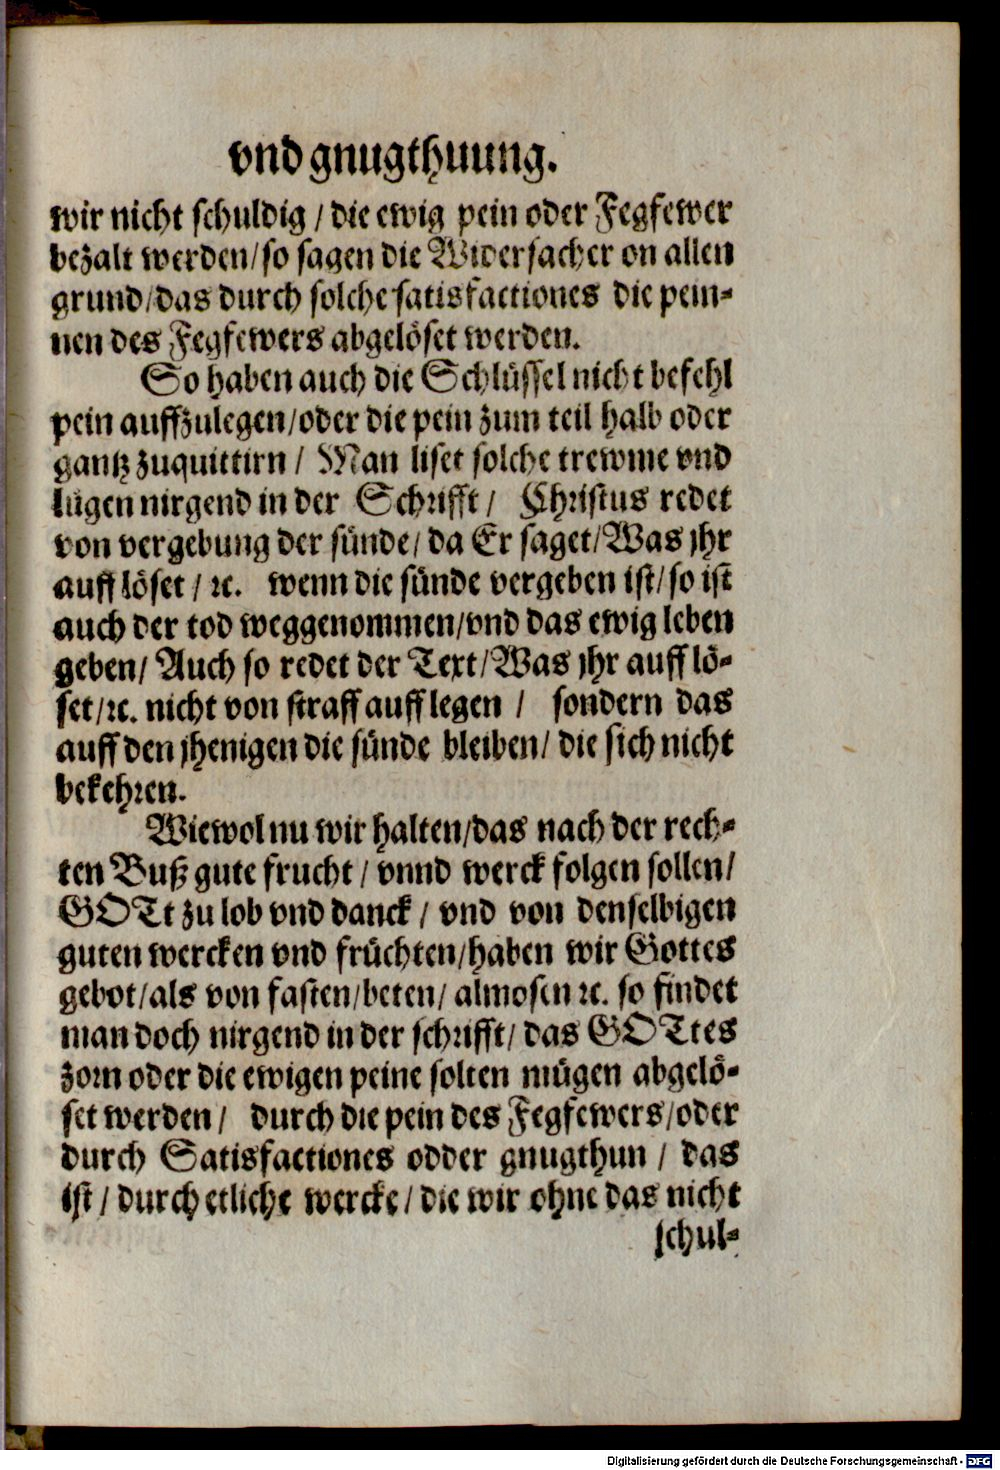 vnd gnugthuung.
wir nicht schuldig / die ewig pein oder Fegfewer
bezalt werden / so sagen die Widersacher on allen
grund / das durch solche satisfactiones die pein-
nen des Fegfewers abgelöset werden.
So haben auch die Schlüssel nicht befehl
pein auffzulegen / oder die pein zum teil halb oder
gantz zuquittirn / Man liset solche trewme vnd
lügen nirgend in der Schrifft / Christus redet
von vergebung der sünde / da Er saget / Was jhr
auff löset / ꝛc. wenn die sünde vergeben ist / so ist
auch der tod weggenommen / vnd das ewig leben
geben / Auch so redet der Text / Was jhr auff lö-
set / ꝛc. nicht von straff auff legen / sondern das
auff den jhenigen die sünde bleiben / die sich nicht
bekehren.
Wiewol nu wir halten / das nach der rech-
ten Buß gute frucht / vnnd werck folgen sollen /
GOTt zu lob vnd danck / vnd von denselbigen
guten wercken vnd früchten / haben wir Gottes
gebot / als von fasten / beten / almosen ꝛc. so findet
man doch nirgend in der schrifft / das GOTtes
zorn oder die ewigen peine solten mügen abgelö-
set werden / durch die pein des Fegfewers / oder
durch Satisfactiones odder gnugthun / das
ist / durch etliche wercke / die wir ohne das nicht
schul-
Digitalisierung gefördert durch die Deutsche Forschungsgemeinschaft - DFG